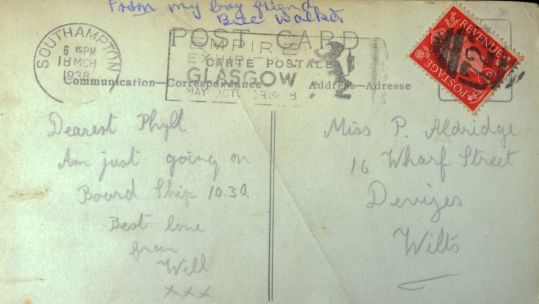 From my boy friend
Bill Walker
POST CARD
SOUTHAMPTON
6 15 PM
18 MCH
1938
EMPIRE
CARTE POSTALE
GLASGOW
MAY OCT
Communication—Correspondance
Address—Adresse
POSTAGE REVENUE
Dearest Phyll
Am just going on
Board Ship 10.30
Best love
from
Will
xxx
Miss P. Aldridge
16 Wharf Street
Devizes
Wilts